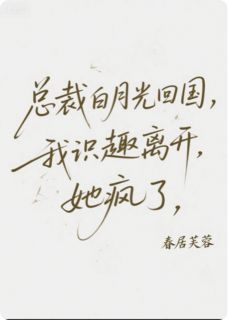 总裁白月光回国，
我识趣离开，
她疯了，
春居芙蓉